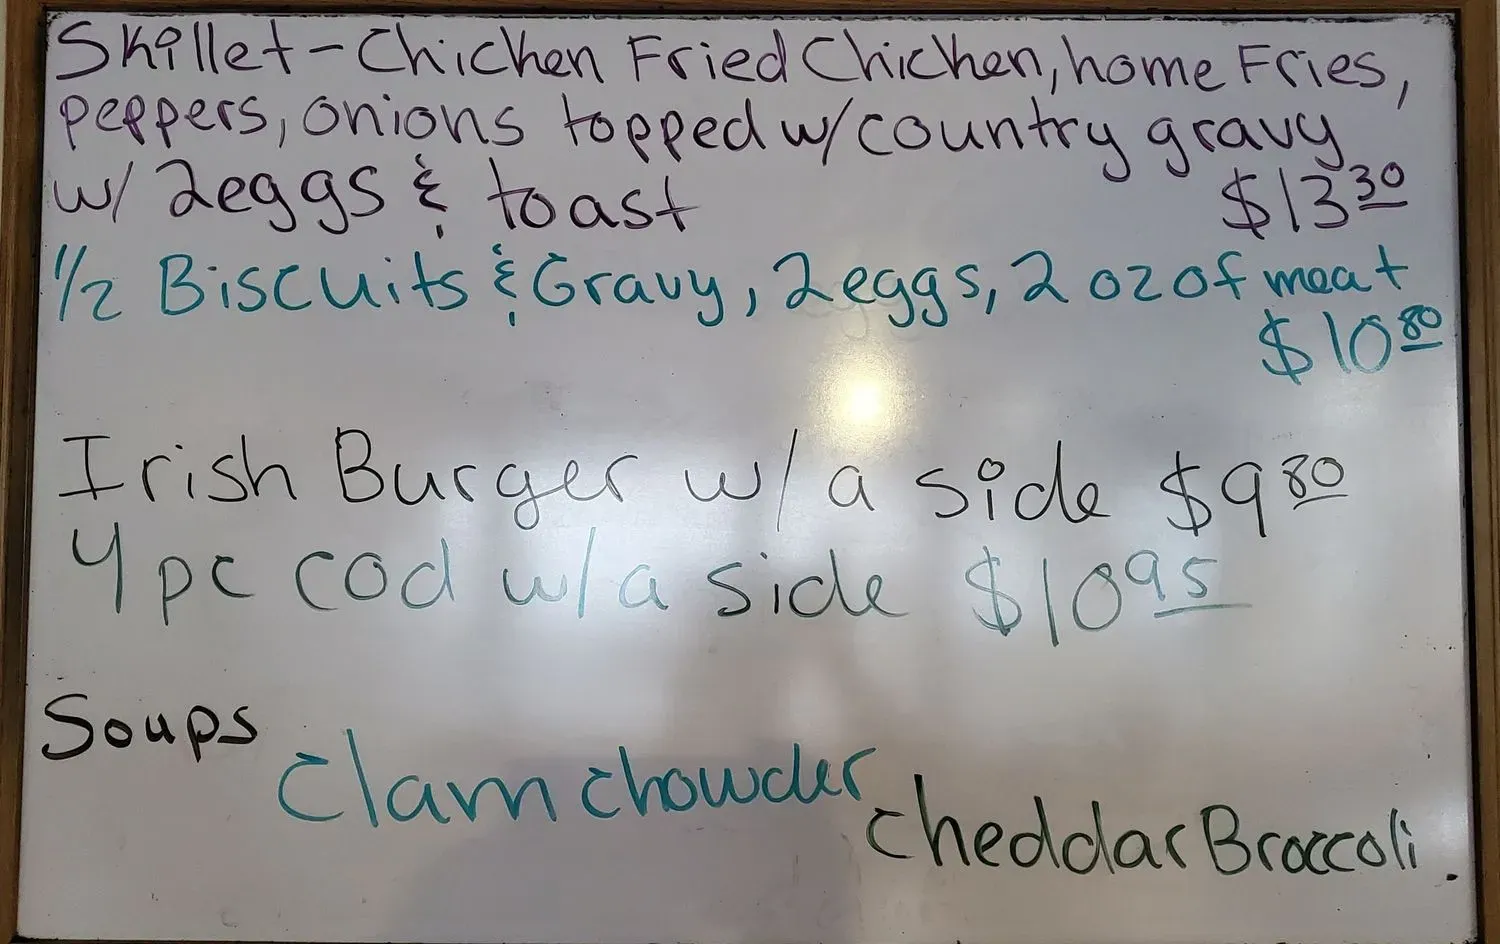 Skillet - Chicken Fried Chicken, home Fries,
peppers, onions topped w/ country gravy
w/ 2 eggs & toast $13.30
1/2 Biscuits & Gravy, 2 eggs, 2 oz of meat
$10.80
Irish Burger w/ a side $9.80
4 pc cod w/ a side $10.95
Soups
Clam chowder
Cheddar Broccoli.